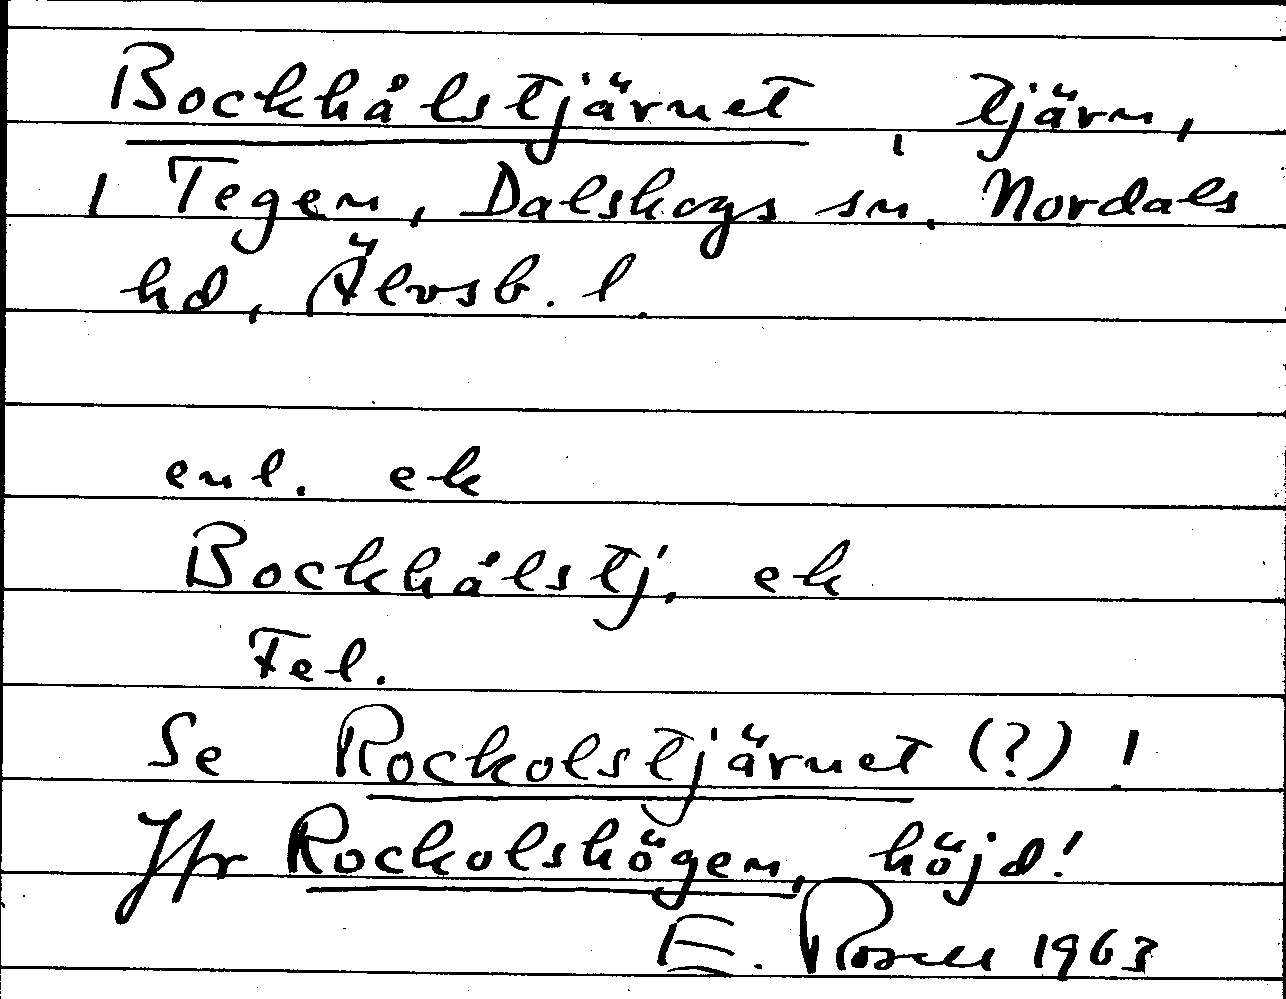 Bockhålstjärnet, tjärn,
i Tegen, Dalskogs sn, Nordals
hd, Älvsb. l.
enl. ek
Bockhålstj. ek
Fel.
Se Rockolstjärnet (?)!
Jfr Rockolshögen, höjd!
E. Rosell 1963